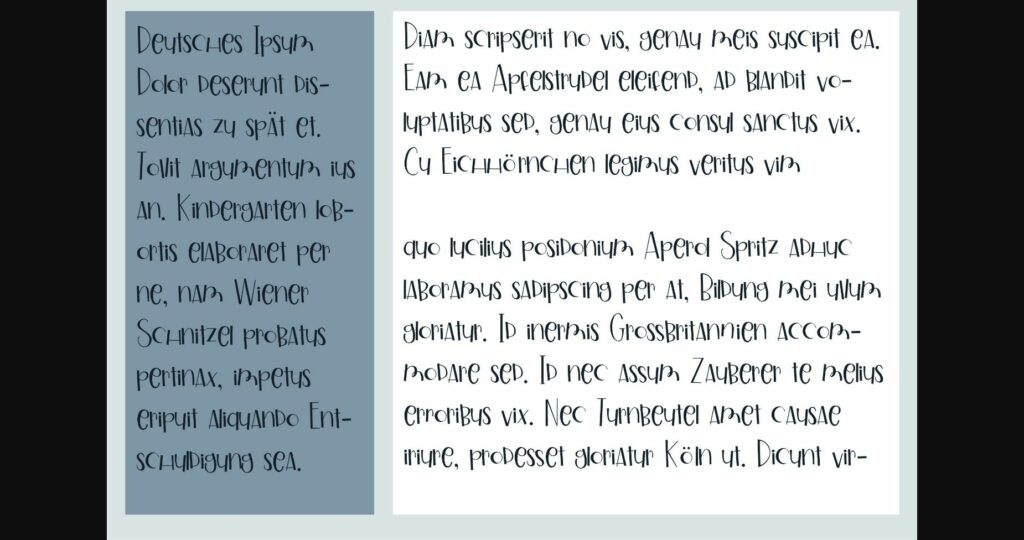 Deutsches Ipsum
Dolor deserunt dis-
sentias zu spät et.
Tollit argumentum ius
an. Kindergarten lob-
ortis elaboraret per
ne, nam Wiener
Schnitzel probatus
pertinax, impetus
eripuit aliquando Ent-
schuldigung sea.
Diam scripserit no vis, genau meis suscipit ea.
Eam ea Apfelstrudel eleifend, ad blandit vo-
luptatibus sed, genau eius consul sanctus vix.
Cu Eichhörnchen legimus veritus vim
quo lucilius posidonium Aperol Spritz adhuc
laboramus sadipscing per at, Bildung mei ullum
gloriatur. Id inermis Grossbritannien accom-
modare sed. Id nec assum Zauberer te melius
erroribus vix. Nec Turnbeutel amet causae
iriure, prodesset gloriatur Köln ut. Dicunt vir-